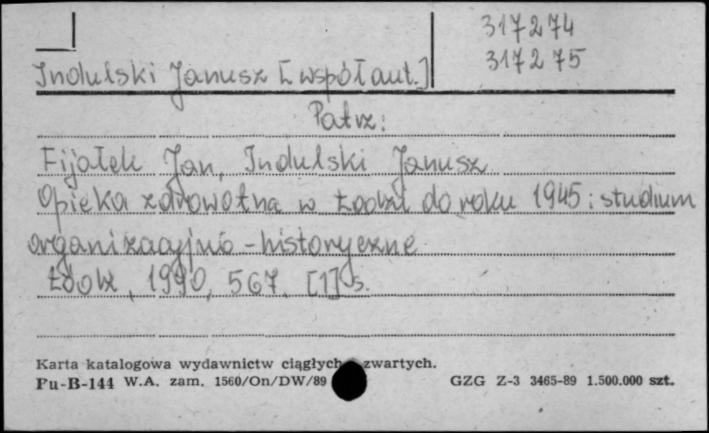 317274
317275
Indulski Janusz [współaut.]
Patrz:
Fijałek Jan, Indulski Janusz
Opieka zdrowotna w Łodzi do roku 1945: studium
organizacyjno-historyczne
Łódź, 1990, 567, [1] s.
Karta katalogowa wydawnictw ciągłych zwartych.
Pu-B-144 W.A. zam. 1560/On/DW/89 GZG Z-3 3465-89 1.500.000 szt.